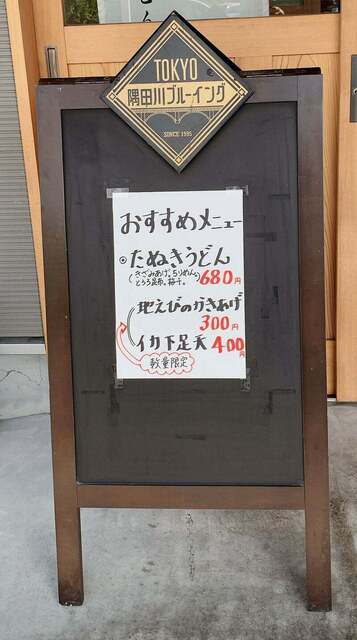 TOKYO
隅田川ブルーイング
SINCE 1995
おすすめメニュー
・たぬきうどん
(きざみあげ、ちりめん、
とろろ昆布、梅干。)
680円
地えびのかきあげ
300円
イカ下足天 400円
数量限定